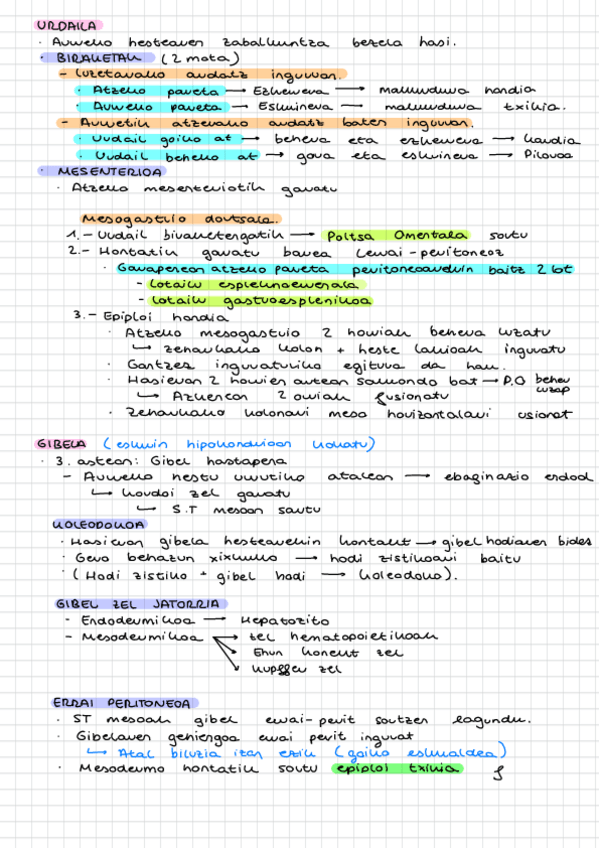 URDAILA
· Aurreko hestearen zabalkuntza bezela hasi.
· BIRAKETAK (2 mota)
- Luzetarako ardatz inguruan.
· Atzeko pareta → Ezkerrera → makurdura handia
· Aurreko pareta → Eskuinera → makurdura txikia.
- Aurretik atzerako ardatz baten inguruan.
· Urdail goiko at → behera eta ezkerrera → Kardia
· Urdail beheko at → gora eta eskuinera → Piloroa
· MESENTERIOA
· Atzeko mesenteriotik garatu
Mesogastrio dortsala.
1.- Urdail biraketengatik → Poltsa Omentala sortu
2.- Hontatik garatu barea Errai-peritoneoz
· Garapenean atzeko pareta peritoneoarekin baitz 2 lot
- Lotailu esplenorrenala
- Lotailu gastroesplenikoa
3.- Epiploi handia
· Atzeko mesogastrio 2 horriak behera luzatu
↳ zeharkako kolon + heste lakioak inguratu
· Gantzez inguraturiko egitura da hau.
· Hasieran 2 horrien artean sakondo bat → P.O behe luzap
↳ Azkenean 2 orriak fusionatu
· Zeharkako kolonari meso horizontalari itsatsi
GIBELA (eskuin hipokondrioan kokatu)
· 3. astean: Gibel hastapena
- Aurreko hestu urrutiko atalean → ebaginazio endod
↳ kordoi zel garatu
↳ S.T mesoan sartu
KOLEDOKOA
· Hasieran gibela hestearekin kontakt → gibel hodiaren bidez
· Gero behazun xixkuko → hodi zistikoari baitu
· (Hodi zistiko + gibel hodi → koledoko).
GIBEL ZEL JATORRIA
- Endodermikoa → Hepatozito
- Mesodermikoa → zel hematopoietikoak
Ehun konekt zel
Kupffer zel
ERRAI PERITONEOA
· ST mesoak gibel errai-perit sortzen lagundu.
· Gibelaren gehiengoa errai perit ingurat
↳ Atal biluzia izan ezik (goiko eskualdea)
· Mesodermo hontatik sortu epiploi txikia